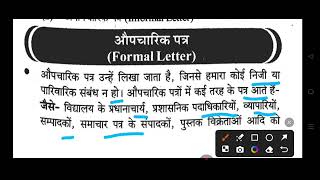 औपचारिक पत्र
(Formal Letter)
औपचारिक पत्र उन्हें लिखा जाता है, जिनसे हमारा कोई निजी या
पारिवारिक संबंध न हो। औपचारिक पत्रों में कई तरह के पत्र आते हैं-
जैसे- विद्यालय के प्रधानाचार्य, प्रशासनिक पदाधिकारियों, व्यापारियों,
सम्पादकों, समाचार पत्र के संपादकों, पुस्तक विक्रेताओं आदि को